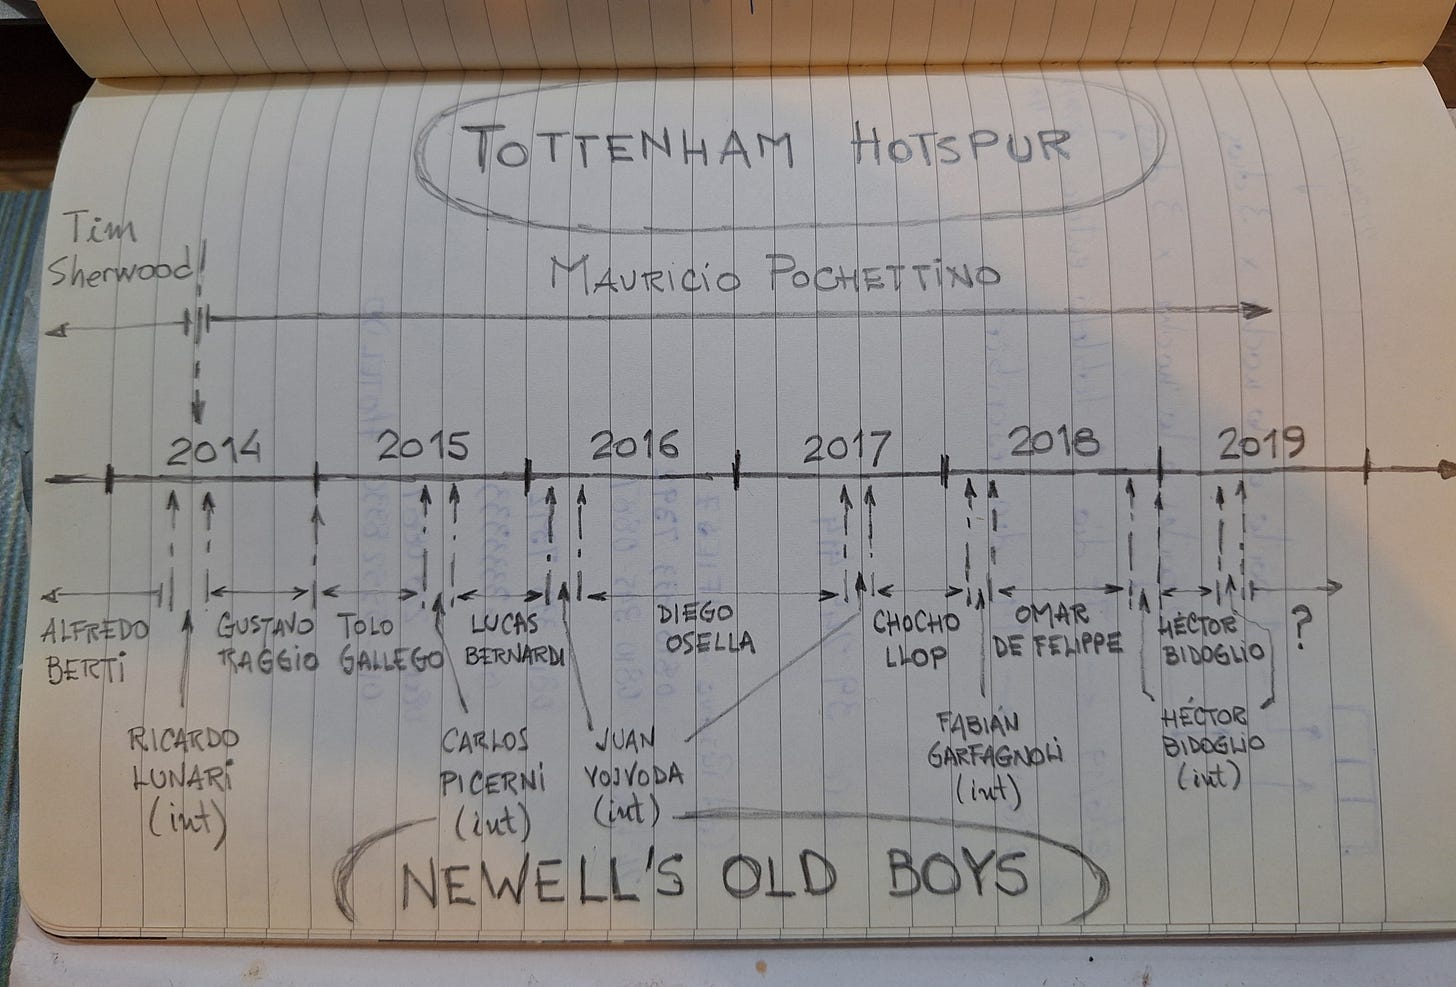 TOTTENHAM HOTSPUR
Tim
Sherwood
MAURICIO POCHETTINO
2014 2015 2016 2017 2018 2019
ALFREDO
BERTI
GUSTAVO
RAGGIO
TOLO
GALLEGO
LUCAS
BERNARDI
DIEGO
OSELLA
CHOCHO
LLOP
OMAR
DE FELIPPE
HÉCTOR
BIDOGLIO
?
RICARDO
LUNARI
(int)
CARLOS
PICERNI
(int)
JUAN
VOJVODA
(int)
FABIÁN
GARFAGNOLI
(int)
HÉCTOR
BIDOGLIO
(int)
NEWELL'S OLD BOYS